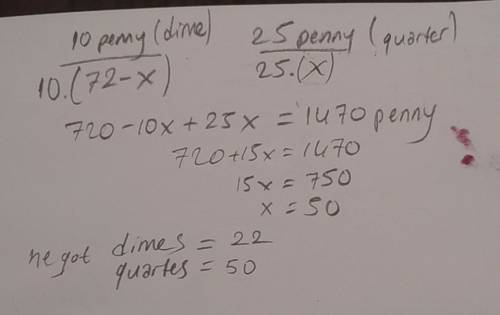 10 penny (dime) 25 penny (quarter)
10.(72-x) 25.(x)
720-10x+25x = 1470 penny
720+15x=1470
15x = 750
x = 50
he got dimes = 22
quartes = 50